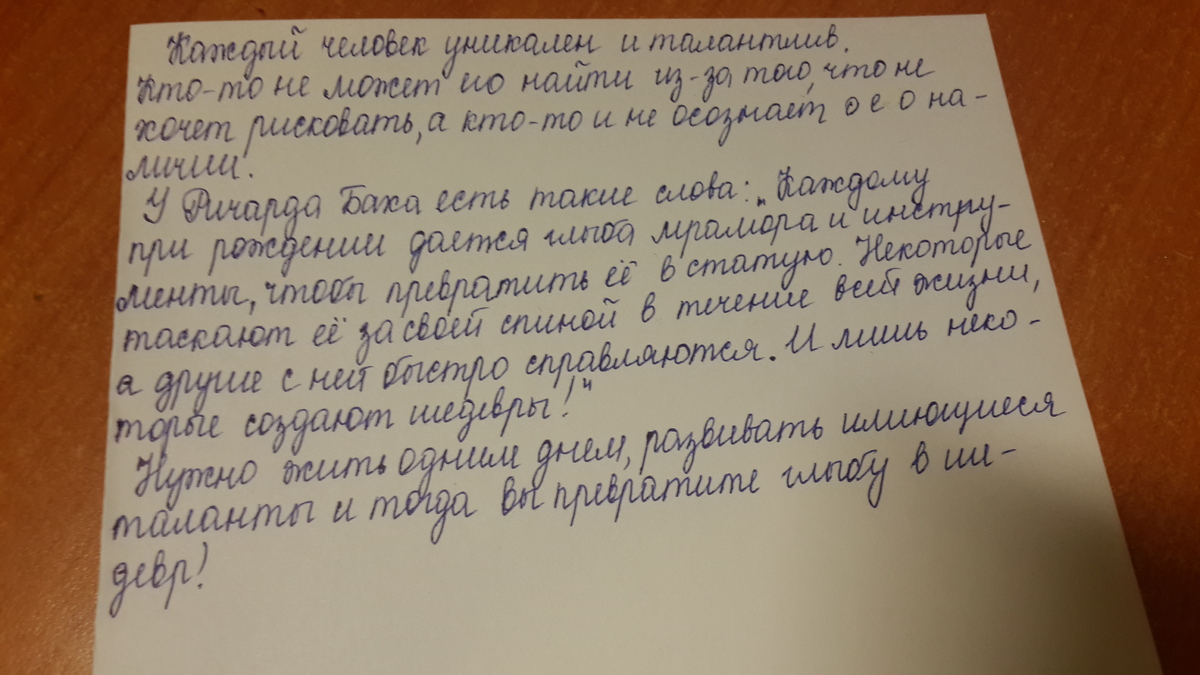 Каждый человек уникален и талантлив.
Кто-то не может его найти из-за того, что не
хочет рисковать, а кто-то и не осознаёт о его на-
личии.
У Ричарда Баха есть такие слова: „Каждому
при рождении дается глыба мрамора и инстру-
менты, чтобы превратить её в статую. Некоторые
таскают её за своей спиной в течение всей жизни,
а другие с ней быстро справляются. И лишь неко-
торые создают шедевры!“
Нужно жить одним днем, развивать имеющиеся
таланты и тогда вы превратите глыбу в ше-
девр!